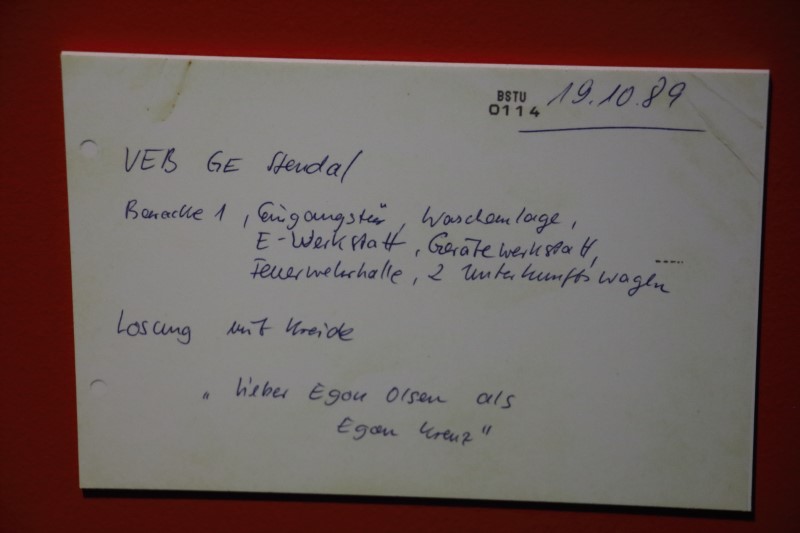 BSTU
0114
19.10.89
VEB GE Stendal
Baracke 1, Eingangstür, Waschanlage,
E-Werkstatt, Gerätewerkstatt,
Feuerwehrhalle, 2 Unterkunftswagen
Losung mit Kreide
„Lieber Egon Olsen als
Egon Krenz"